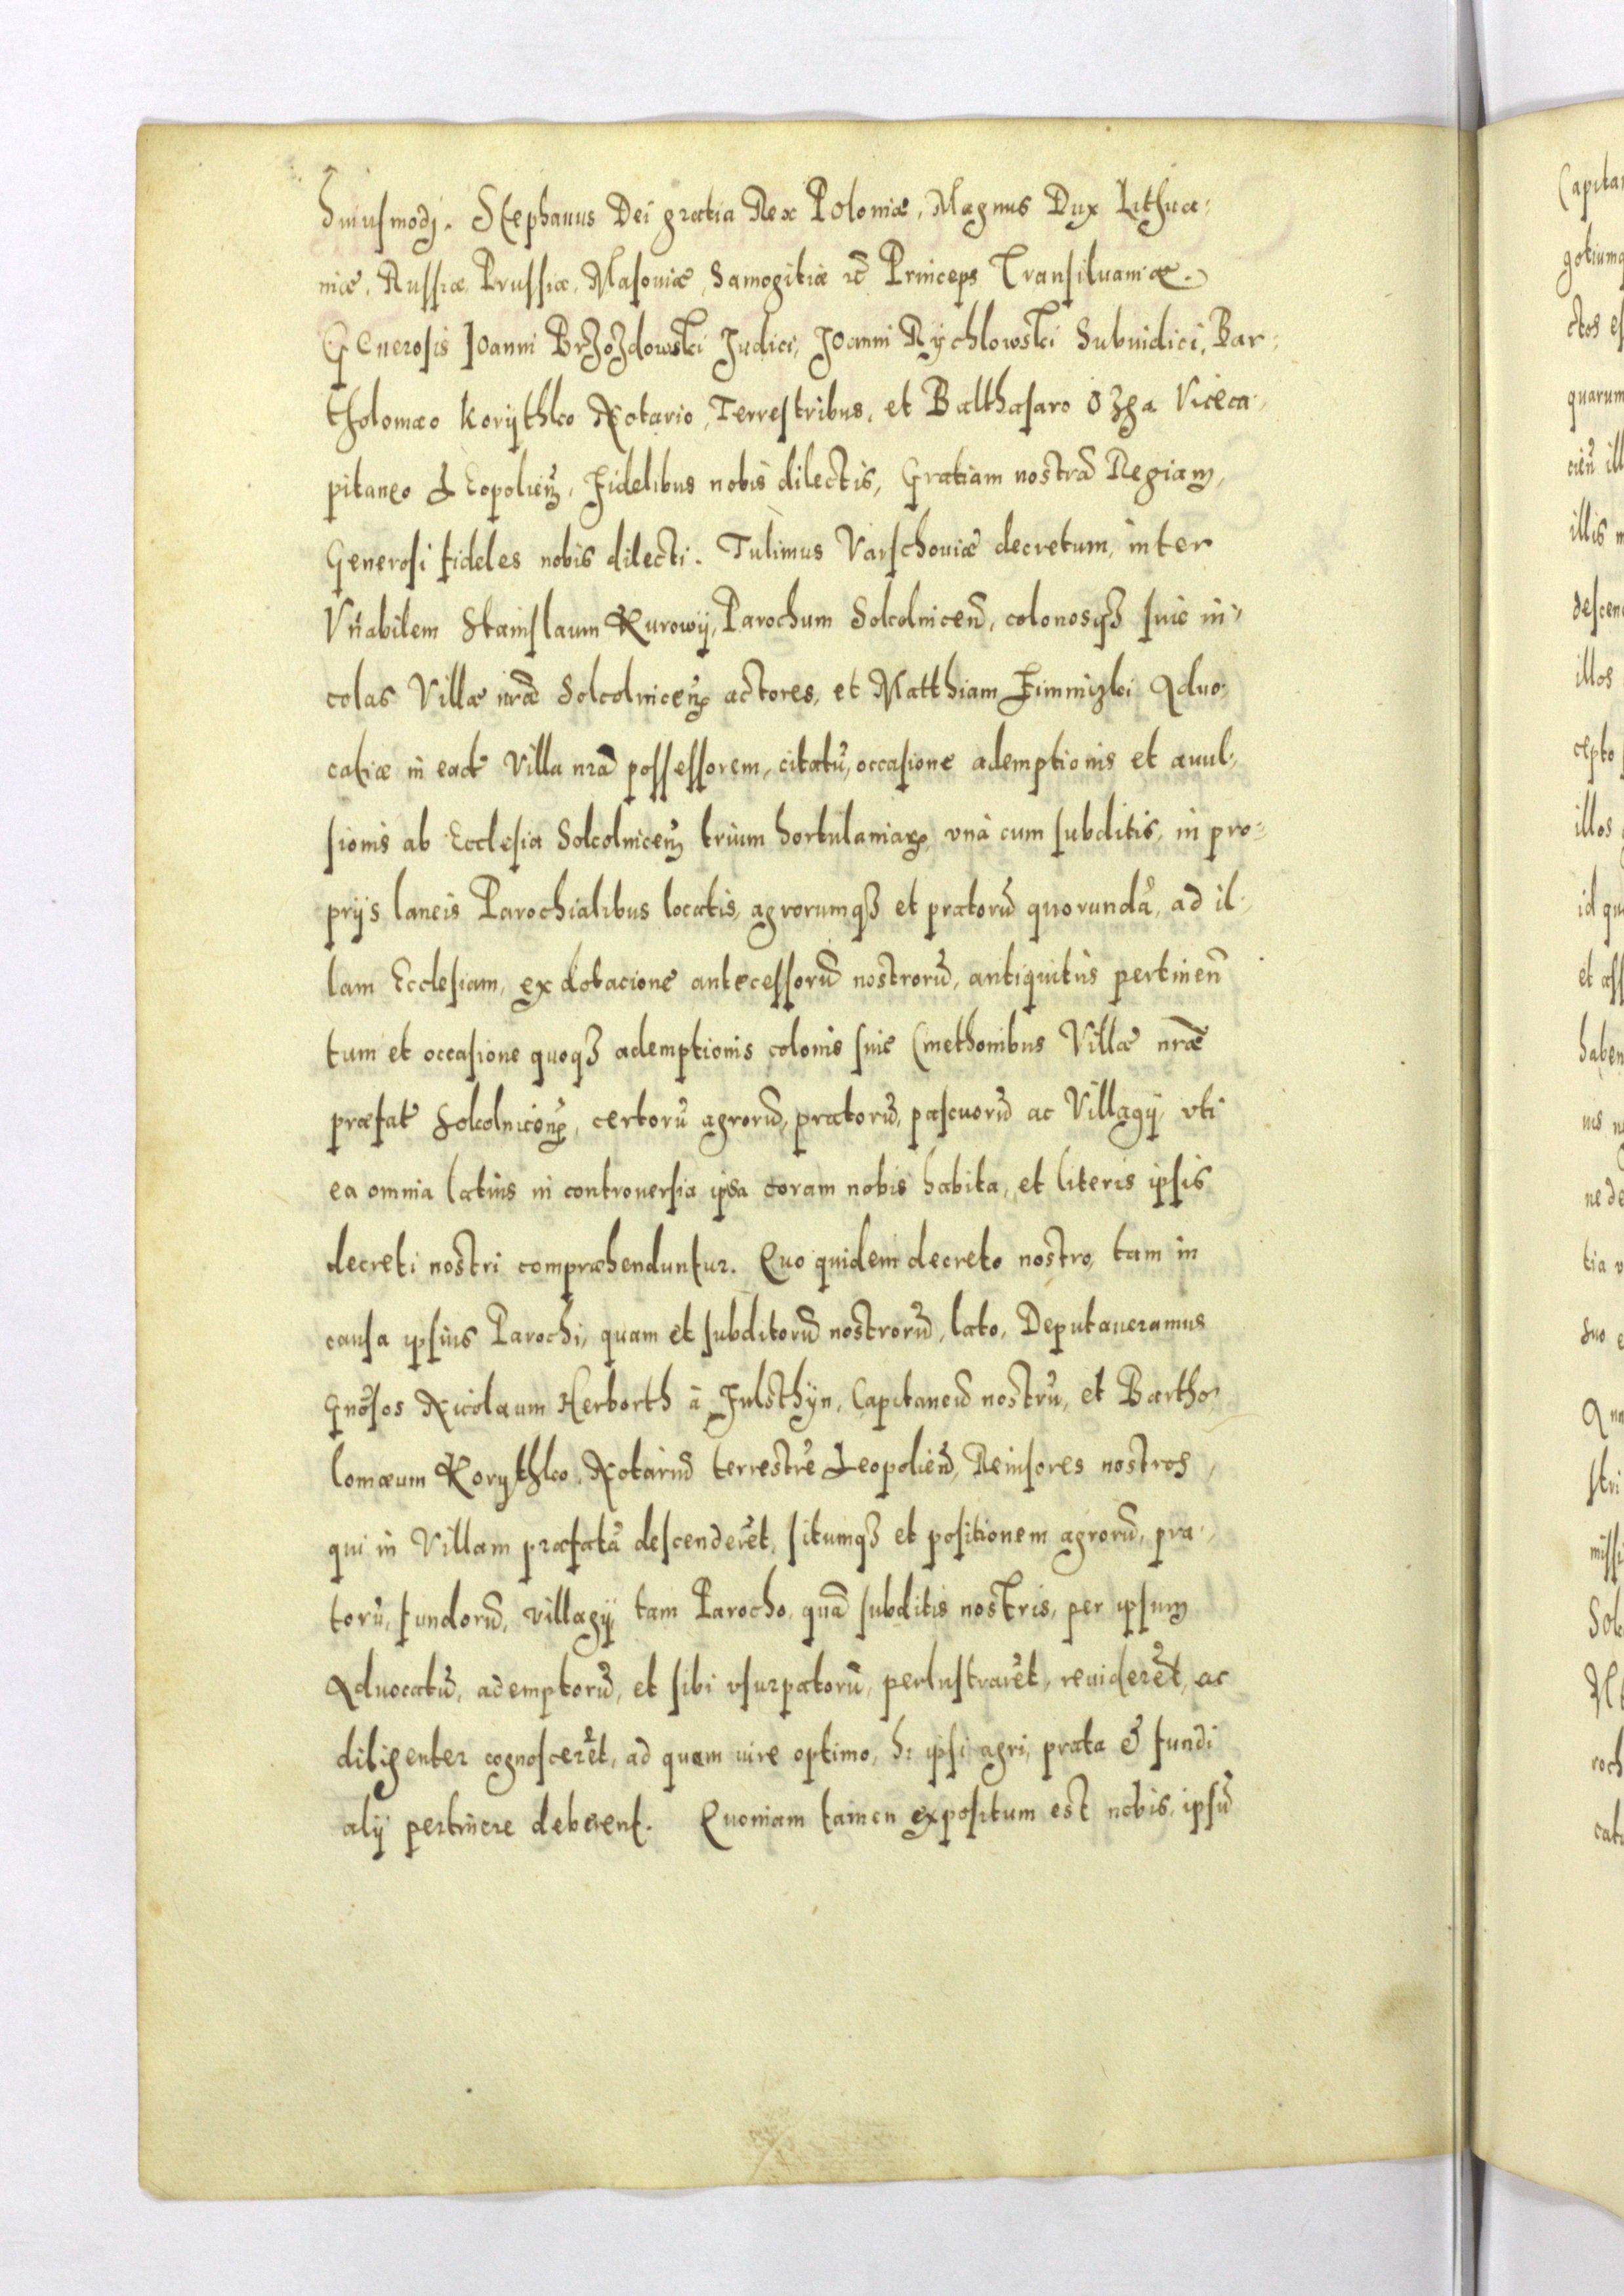 huiusmodj. Stephanus Dei gratia Rex Poloniæ, Magnus Dux Lithua-
niæ, Russiæ, Prussiæ, Masouiæ, Samogitiæ ec̃ Princeps Transiluaniæ.
Generosis Joanni Brzozdowski Judici, Joanni Rychlowski Subiudici, Bar-
tholomæo Korythko Notario, Terrestribus, et Balthasaro Ozga Viceca-
pitaneo Leopolien̄, Fidelibus nobis dilectis, Gratiam nostrā Regiam,
Generosi fideles nobis dilecti. Tulimus Varschouiæ decretum, inter
Vn̄abilem Stanislaum Kurowij, Parochum Sokolnicen̄, colonosq3 siue in-
colas Villæ nr̄æ Sokolnicen̄ actores, et Matthiam Aduo-
catiæ in ead̄ Villa nrā possessorem, citatū, occasione ademptionis et auul-
sionis ab Ecclesia Sokolnicen̄ trium hortulaniarꝝ, vnà cum subditis, in pro-
prijs laneis Parochialibus locatis, agrorumq3 et pratorū quorundā, ad il-
lam Ecclesiam, ex dotacione antecessorū nostrorū, antiquitùs pertinen̄
tum et occasione quoq3 ademptionis colonis siue Cmethonibus Villæ nr̄æ
præfat̄ Sokolnicen̄, certorū agrorū, pratorū, pascuorū ac Villagij, vti
ea omnia latius in controuersia ipsa coram nobis habita, et literis ipsis
decreti nostri compræhenduntur. Quo quidem decreto nostro, tam in
causa ipsius Parochi, quam et subditorū nostrorū, lato, Deputaueramus
Gnōsos Nicolaum Herborth à Fulsthyn, Capitaneū nostrū, et Bartho-
lomæum Korythko, Notariū terrestrē Leopolien̄, Reuisores nostros,
qui in Villam præfatā descenderēt, situmq3 et positionem agrorū, pra-
torū, fundorū, villagij, tam Parocho, quā subditis nostris, per ipsum
Aduocatū, ademptorū, et sibi vsurpatorū, perlustrarēt, reuiderēt, ac
diligenter cognoscerēt, ad quem iure optimo, h: ipsi agri, prata & fundi
alij pertinere deberent. Quoniam tamen expositum est nobis, ipsū